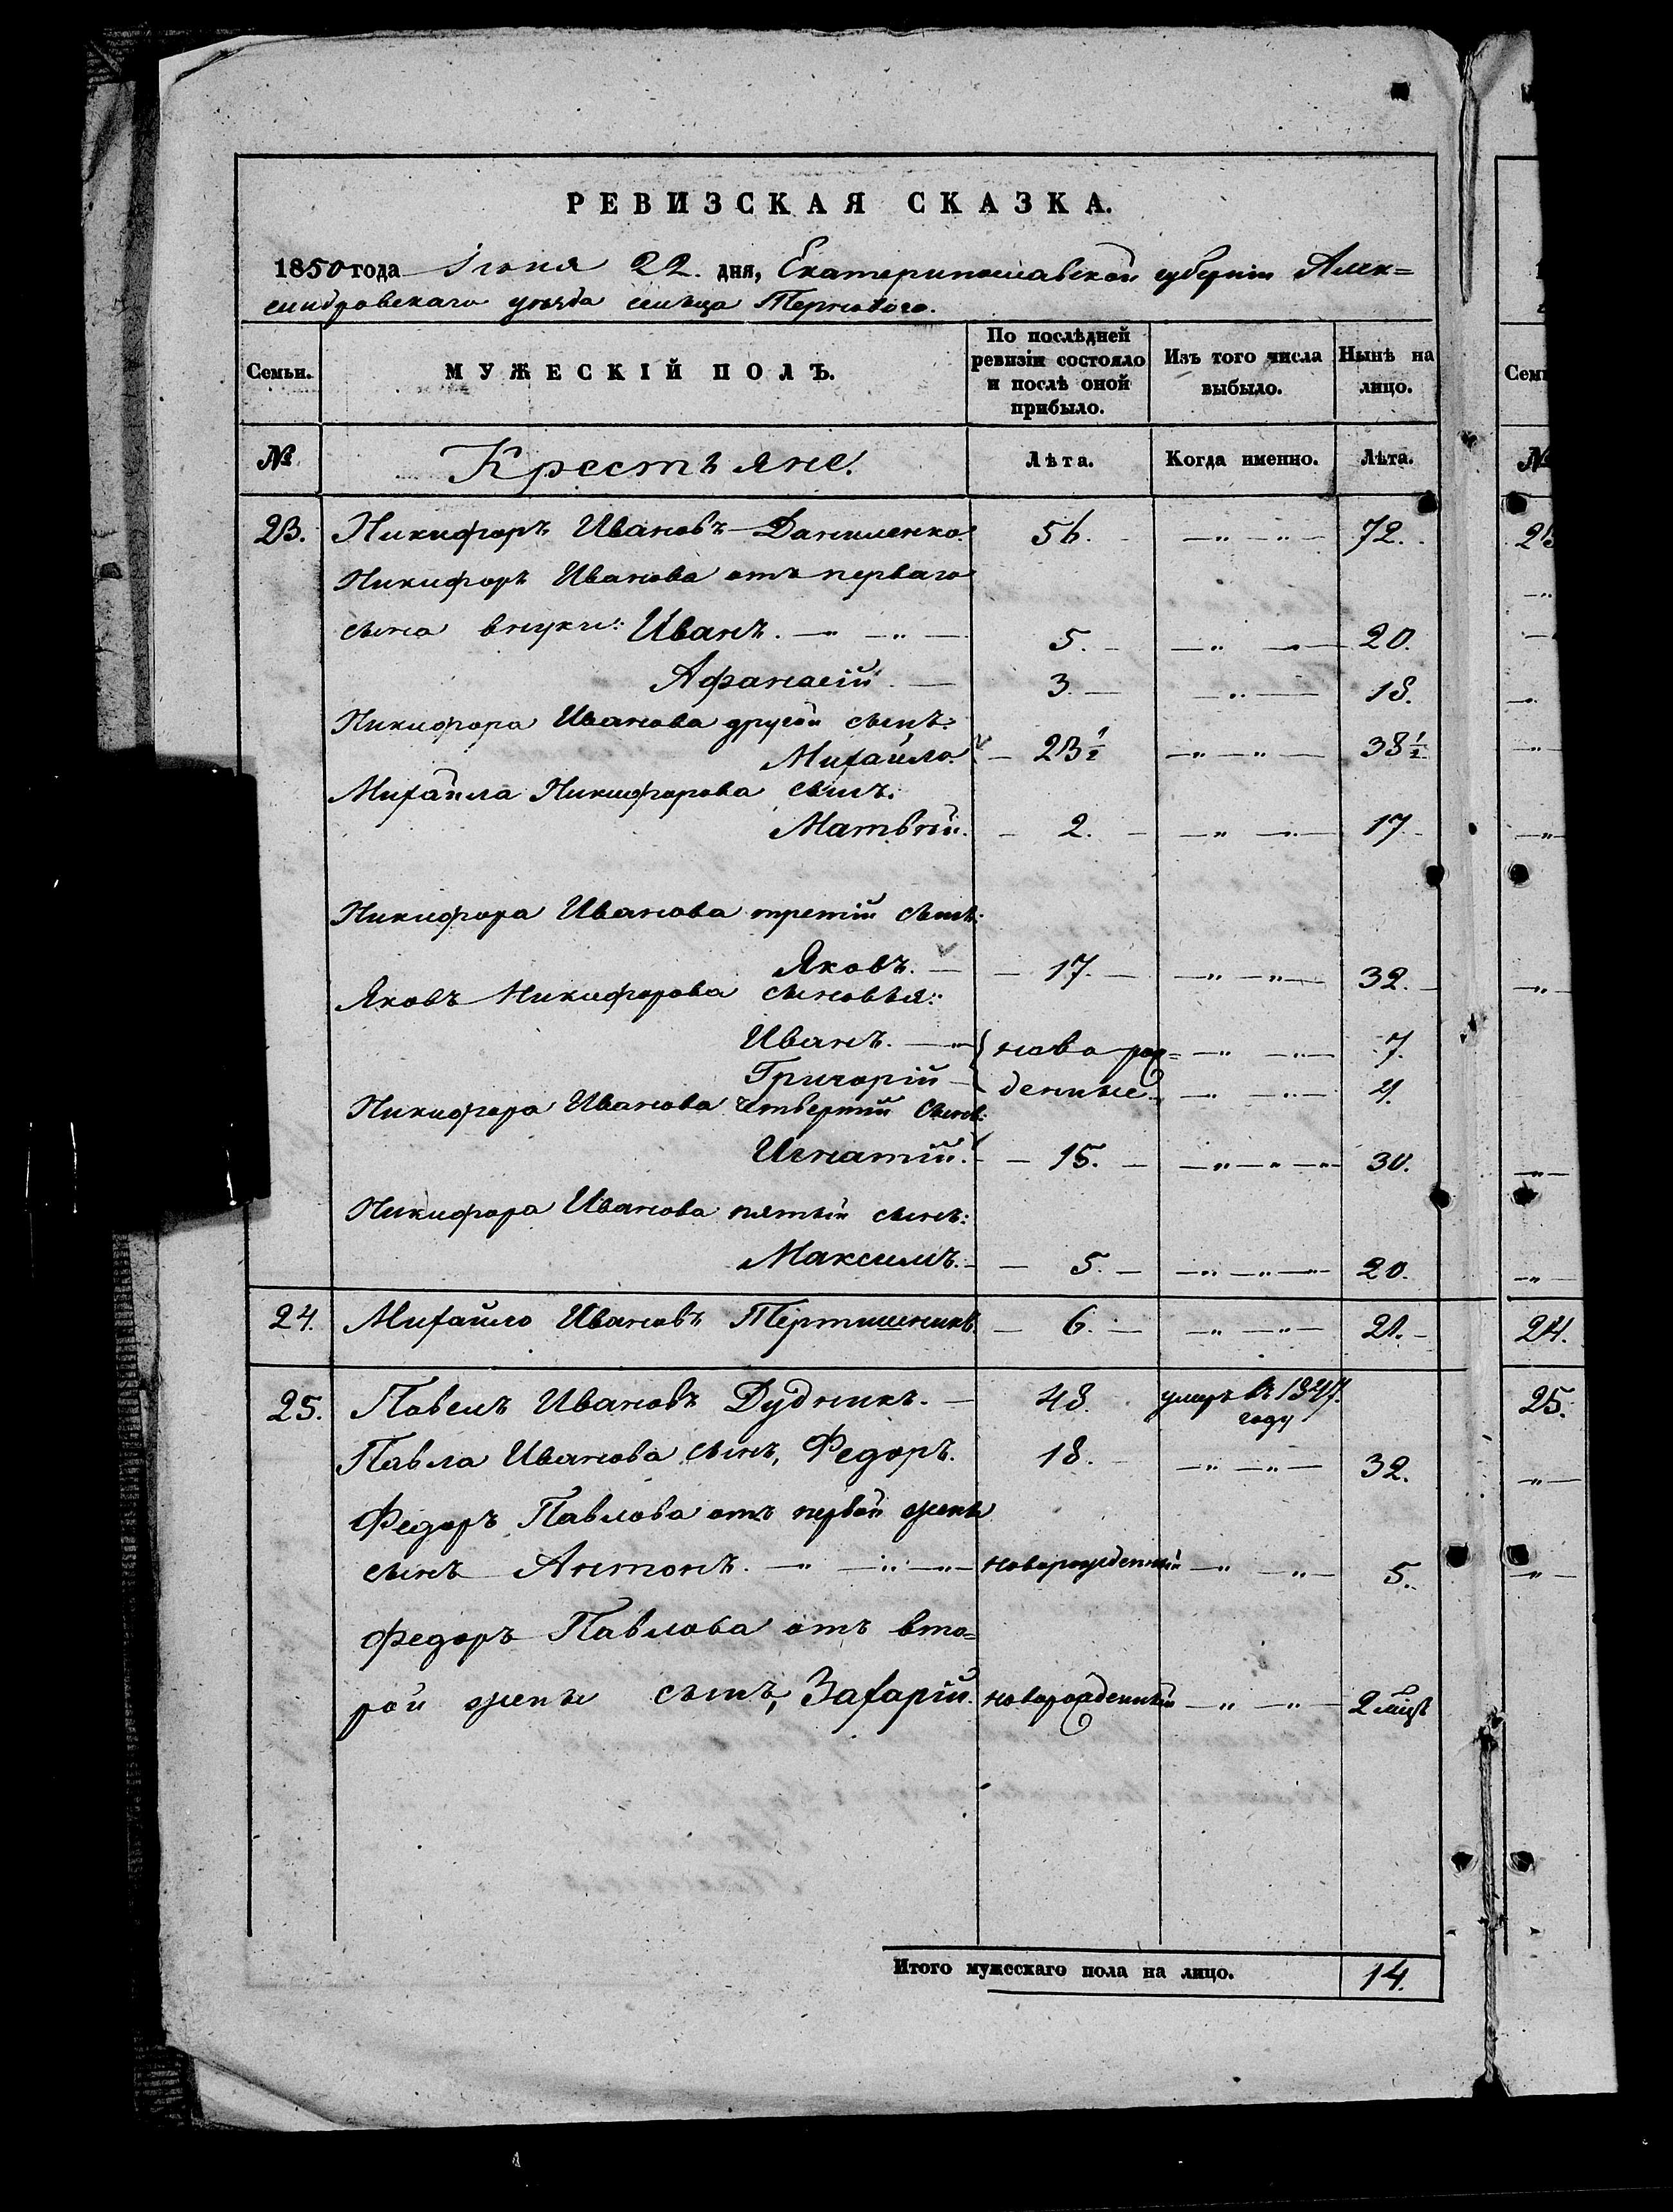 РЕВИЗСКАЯ СКАЗКА.
1850 года Іюня 22. дня, Екатеринославской губерніи Алек=
сандровскаго уѣзда сельца Терноваго.
Семьи. МУЖЕСКІЙ ПОЛЪ. По послѣдней ревизіи состояло и послѣ оной прибыло. Изъ того числа выбыло. Нынѣ на лицо. Семь
№ Крестъяне. Лѣта. Когда именно. Лѣта. №
23. Никифоръ Ивановъ Даниленко. 56. —"—"— 72.
Никифоръ Иванова отъ перваго
сына внуки: Иванъ. —"—"— 5. —"— —"— 20.
Афанасій. — 3 — —"— 18.
Никифора Иванова другой сынъ:
Михайло. — 23½ —"—"— 38½
Михайла Никифорова сынъ:
Матвѣй. — 2. — —"— —"— 17
Никифора Иванова третій сынъ:
Яковъ. — — 17. — —"—"— 32.
Яковъ Никифорова сыновья:
Иванъ. —"— новорож= —"— —"— 7.
Григорій — денные. —"— —"— 4.
Никифора Иванова четвертый сынъ:
Игнатій. — 15. — —"—"—"— 30.
Никифора Иванова пятый сынъ:
Максимъ. — — 5. — —"—"—"— 20.
24. Михайло Ивановъ — 6. — —"—"— 21. — 24.
25. Павелъ Ивановъ Дудникъ. — 48. умеръ въ 1847. году 25.
Павла Иванова сынъ, Федоръ. 18. —"—"— 32.
Федоръ Павлова отъ первой жены
сынъ Антонъ. —"— —"— —"— новорожденный —"— —"— 5.
Федоръ Павлова отъ вто=
рой жены сынъ, Захарій. новорожденный —"—"— 2 мцѣ
Итого мужескаго пола на лицо. 14.